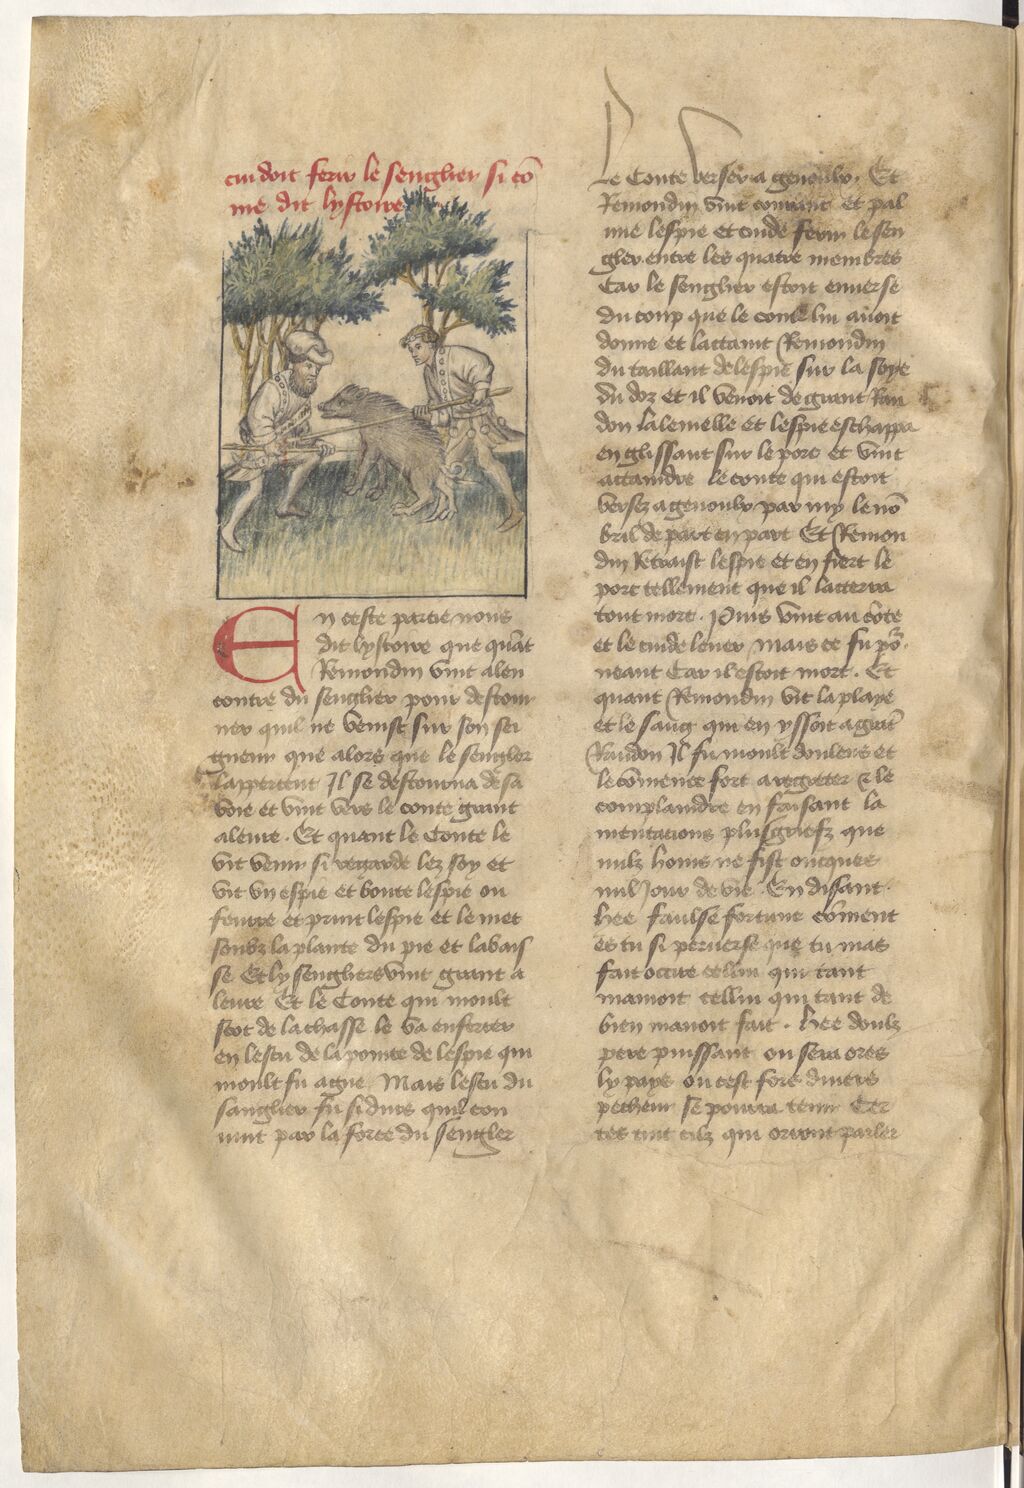 cui doit ferir le senglier si cō
me dit lystoire
En ceste partie nous
dit lystoire que quāt
Remondin vint alen
contre du senglier pour destour
ner quil ne venist sur son sei
gneur que alors que le sengler
lappercent Il se destourna de sa
voie et vint vers le conte grant
aleure. Et quant le Conte le
vit venir si regarde lez soy et
vit vn espie et boute lespie ou
feurre et print lespie et le met
soubz la plante du pie et labais
se Et ly sengliers vint grant a
leure Et le Conte qui moult
scot de la chasse le va enferrer
en lescu de la pointe de lespie qui
moult fu ague Mais lescu du
sanglier fu si durs quil con
uint par la force du sengler
Le Conte verser a genoulx. Et
Remondin vint courant et pal
me lespie et cuide ferir le sen
gler entre les quatre membres
Car le senglier estoit enuerse
du coup que le conte lui auoit
donne et lattaint Remondin
du taillant de lespie sur la soye
du doz et il venoit de grant Ran
don lalemelle et lespie eschappa
en glissant sur le porc et vint
attaindre le conte qui estoit
versez a genoulx par my le nō
bril de part en part Et Remon
din Retraist lespie et en fiert le
porc tellement que il latterra
tout mort. Puis vint au cōte
et le cuide leuer Mais ce fu po
neant Car il estoit mort. Et
quant Remondin vit la playe
et le sang qui en yssoit a grāt
Randon Il fu moult doulens et
le cōmence fort a regreter & le
complaindre en faisant la
mentacions plus griefz que
nulz homs ne fist oncques
nul Jour de vie. En disant.
Hee faulse fortune cōment
es tu si peruerse que tu mas
fait occire cellui qui tant
mamoit cellui qui tant de
bien mauoit fait. Hee doulz
pere puissant ou sera ores
ly pays ou cest fors diuers
pecheur se pourra tenir Cer
tes tuit cilz qui orront parler